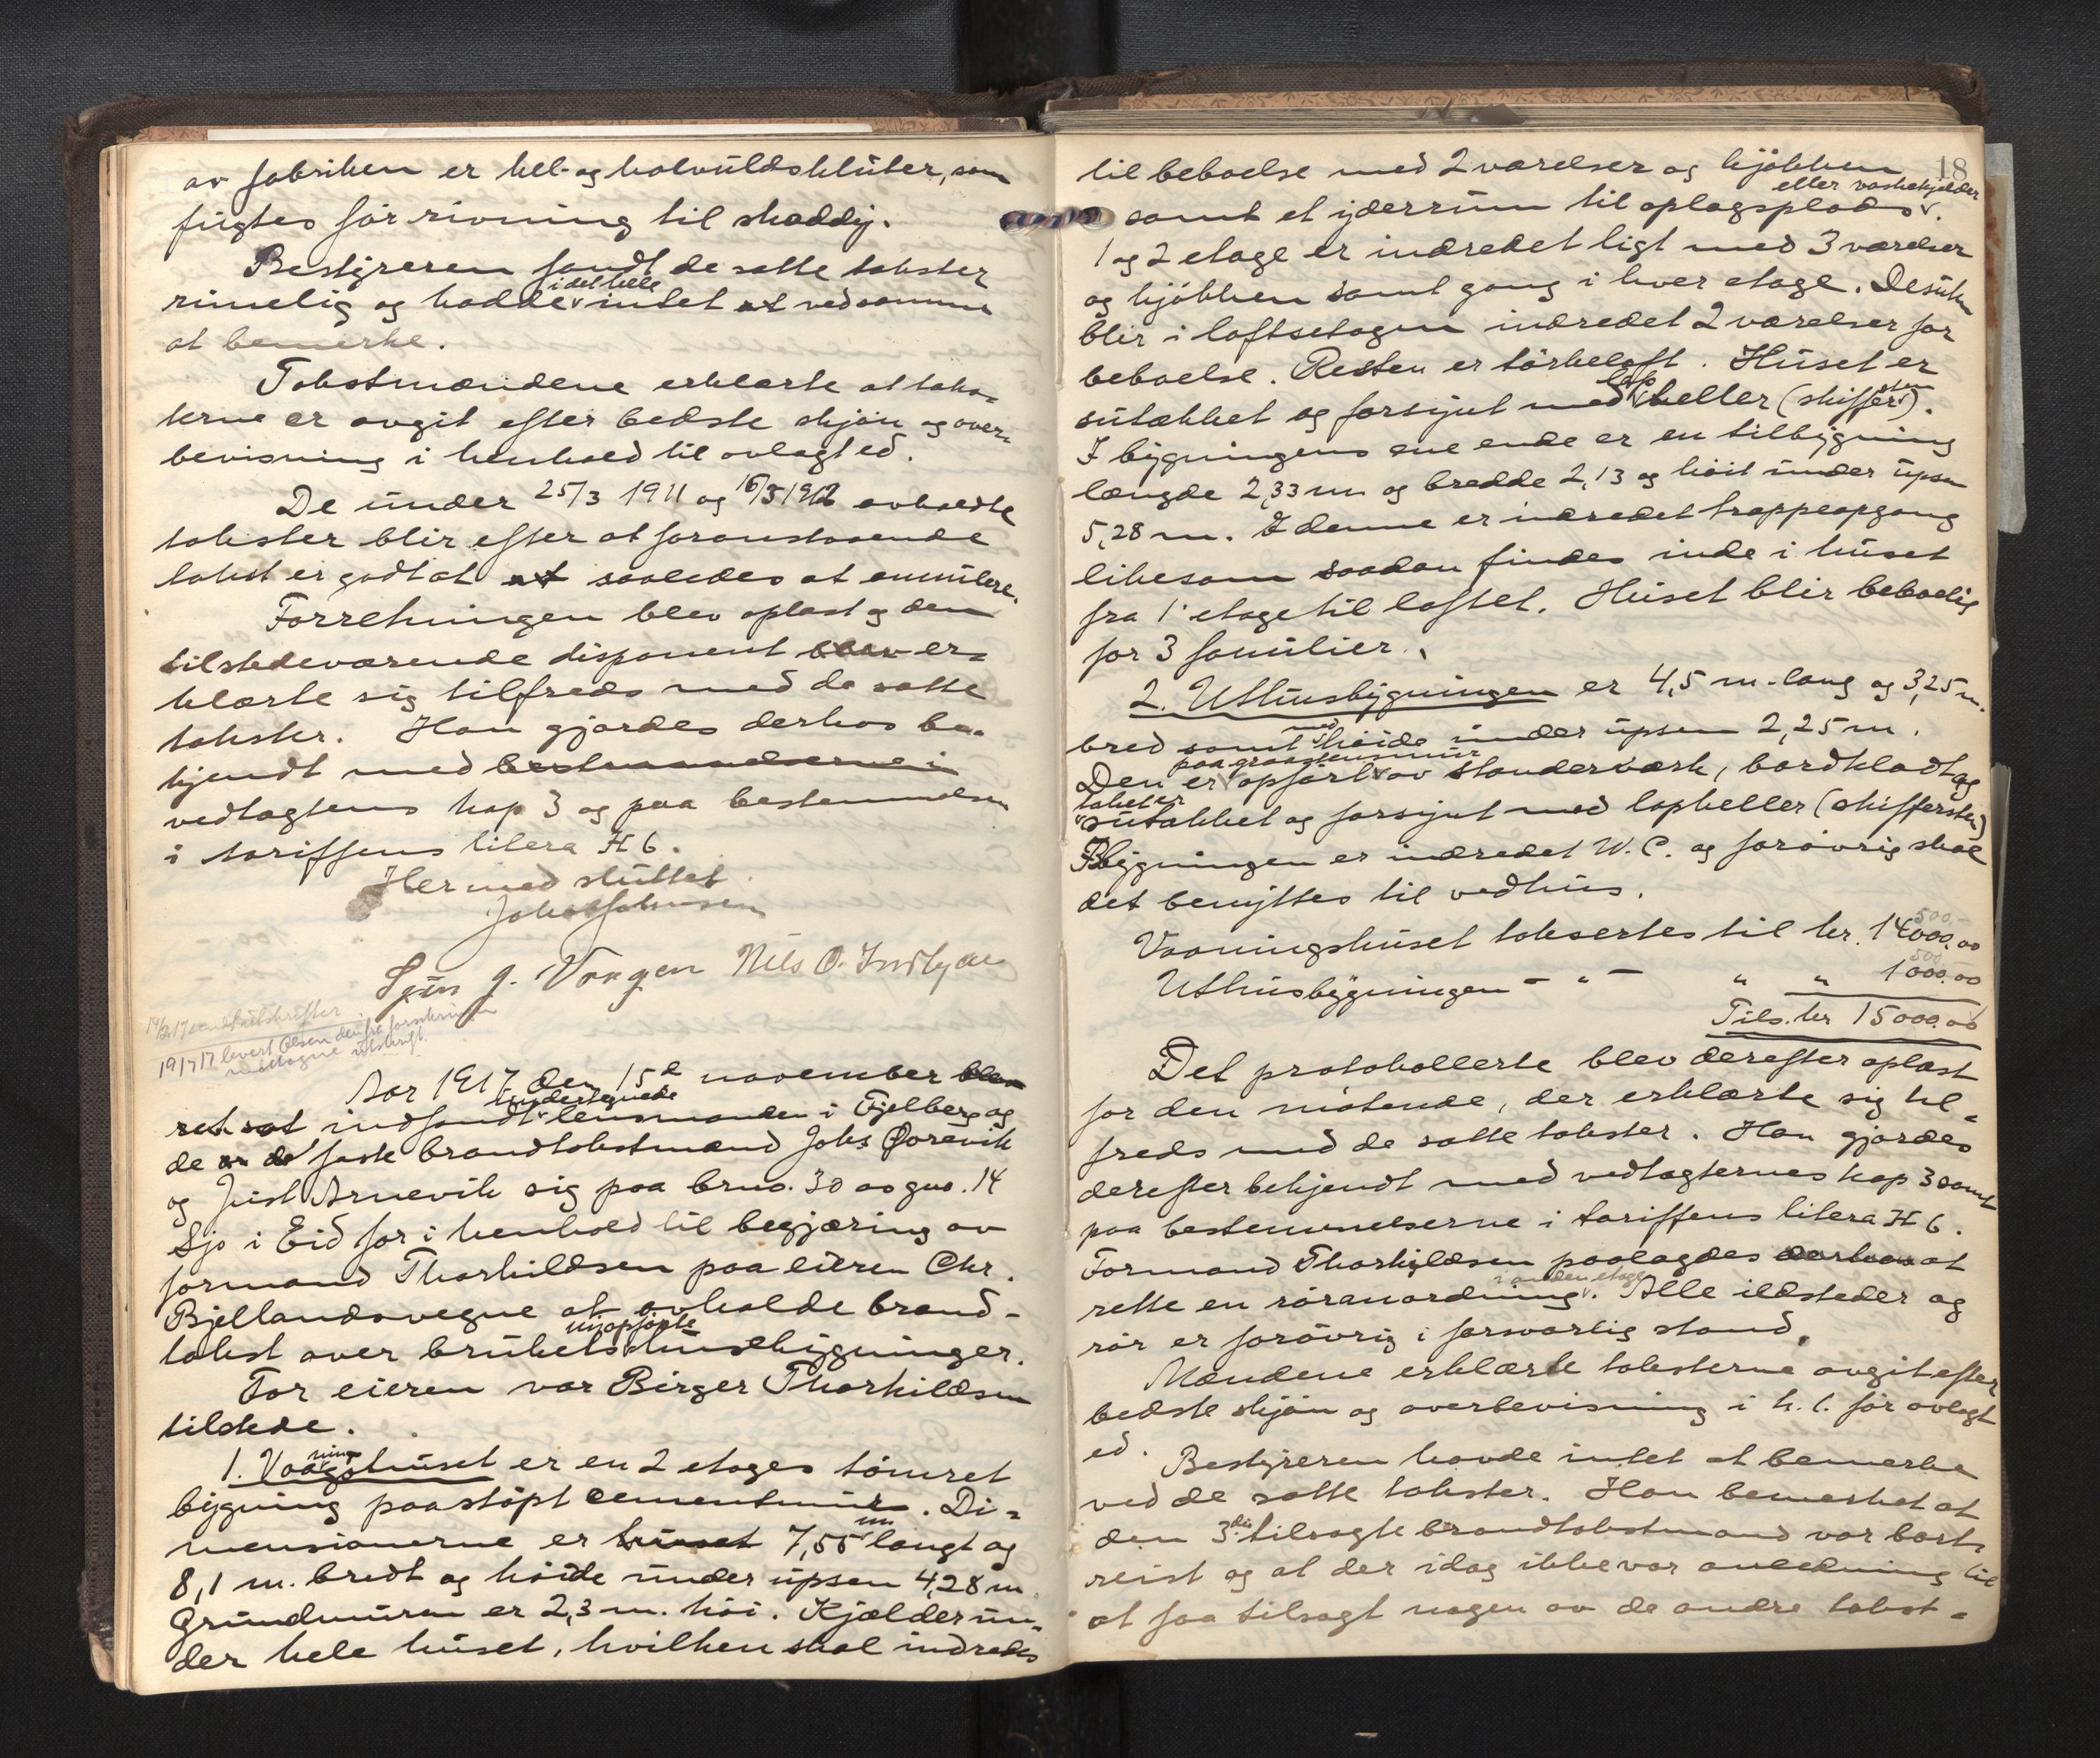 av fabriken er hel- og halvuldsklüter, som
fügtes för rivning til shoddy.
Bestyreren fandt de satte takster
rimelig og hadde i det hele intet at ved samme
at bemerke.
Takstmændene erklærte at taks-
terne er avgit efter bedste skjön og over-
bevisning i henhold til avlagt ed.
De ünder 25/3 1911 og 16/5 1912 avholdte
takster blir efter at foranstaaende
takst er godtat at saaledes at annülere.
Forretningen blev oplæst og den
tilstedeværende disponent blev er-
klærte sig tilfreds med de satte
takster. Han gjordes derhos be-
kjendt med bestemmelserne i
vedtægtens kap 3 og paa bestemmelsen
i tariffens litera H 6.
Hermed slüttet
Jakob Johnsen
J. Vaagen Nils O.
14/2 17 sendt ütskrifter
19/7 17 levert Olsen den fra forsikringen
mottagne ütskrift.
Aar 1917 den 15de november blev
ret sat indfandt ündertegnede lensmanden i Fjelberg og
de faste brandtakstmænd Johs Örevik
og Just Arnevik sig paa brno. 30 av gno. 14
Sjo i Eid for i henhold til begjæring av
formand Thorkildsen paa eieren Chr.
Bjellands vegne at avholde brand-
takst over brükets nyopförte hüsebygninger.
For eieren var Birger Thorkildsen
tilstede.
1. Vaaningshüset er en 2 etages tömret
bygning paa stöpt cementmür. Di-
mensionerne er hüset 7,55 m langt og
8,1 m. bredt og höide ünder üpsen 4,28 m.
Gründmüren er 2,3 m. höi. Kjælder ün-
der hele hüset, hvilken skal indredes
18
til beboelse med 2 værelser og kjökken
samt et yderrüm til oplagsplads eller vaskekjelder.
1 og 2 etage er indredet ligt med 3 værelser
og kjökken samt gang i hver etage. Desüten
blir i loftsetagen indredet 2 værelser for
beboelse. Resten er törkeloft. Hüset er
sütækket og forsynt med lap heller (skiffersten).
I bygningens ene ende er en tilbygning
længde 2,33 m og bredde 2,13 og höit ünder üpsen
5,28 m. I denne er indredet trappeopgang
likesom saadan findes inde i hüset
fra 1' etage til loftet. Hüset blir beboelig
for 3 familier.
2. Uthüsbygningen er 4,5 m. lang og 3,25 m.
bred samt med höide ünder üpsen 2,25 m.
Den er paa graastensmür opfört av standerværk, bordklædt og
taket er sütækket og forsynt med lapheller (skiffersten)
I bygningen er indredet W.C. og forövrig skal
det benyttes til vedhüs.
Vaaningshüset taksertes til kr. 14000.00
500.-
Uthüsbygningen - " - " " 1000.00
500.-
Tils. kr 15000.00
Det protokollerte blev derefter oplæst
for den mötende, der erklærte sig til-
freds med de satte takster. Han gjordes
derefter bekjendt med vedtægternes kap 3 samt
paa bestemmelserne i tariffens litera H 6.
Formand Thorkildsen paalagdes derhos at
rette en röranordning i anden etage. Alle ildsteder og
rör er forövrig i forsvarlig stand.
Mændene erklærte taksterne avgit efter
bedste skjön og overbevisning i h. t. för avlagt
ed.
Bestyreren havde intet at bemerke
ved de satte takster. Han bemerket at
den 3die tilsagte brandtakstmand var bort-
reist og at der idag ikke var anledning til
at faa tilsagt nogen av de andre takst-